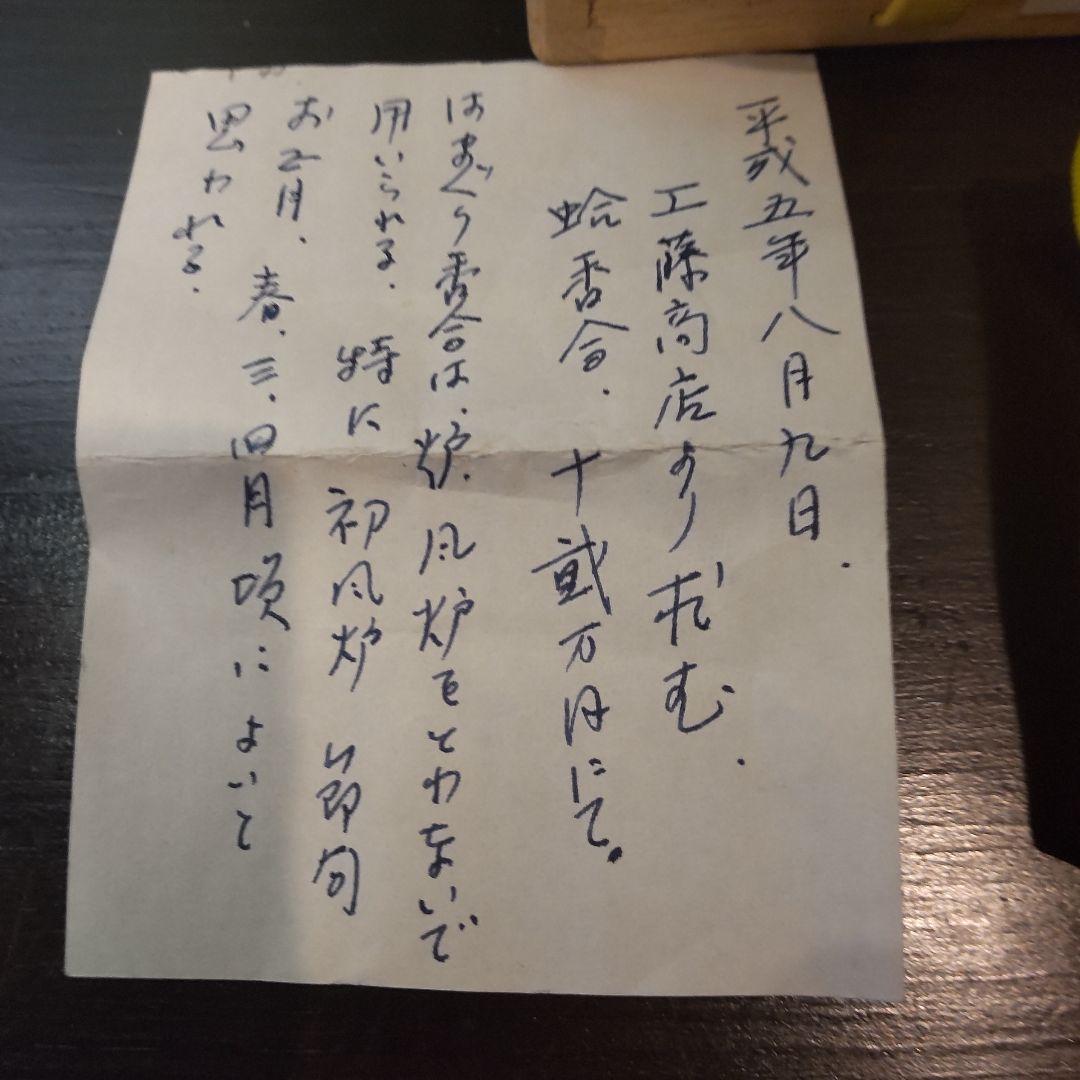 平成五年八月九日.
工藤商店より求む.
蛤香合. 十貮万円にて。
はまぐり香合は、炉.風炉をとわないで
用いられる. 特に初風炉 節句
お正月. 春、三、四月頃によいと
思われる.